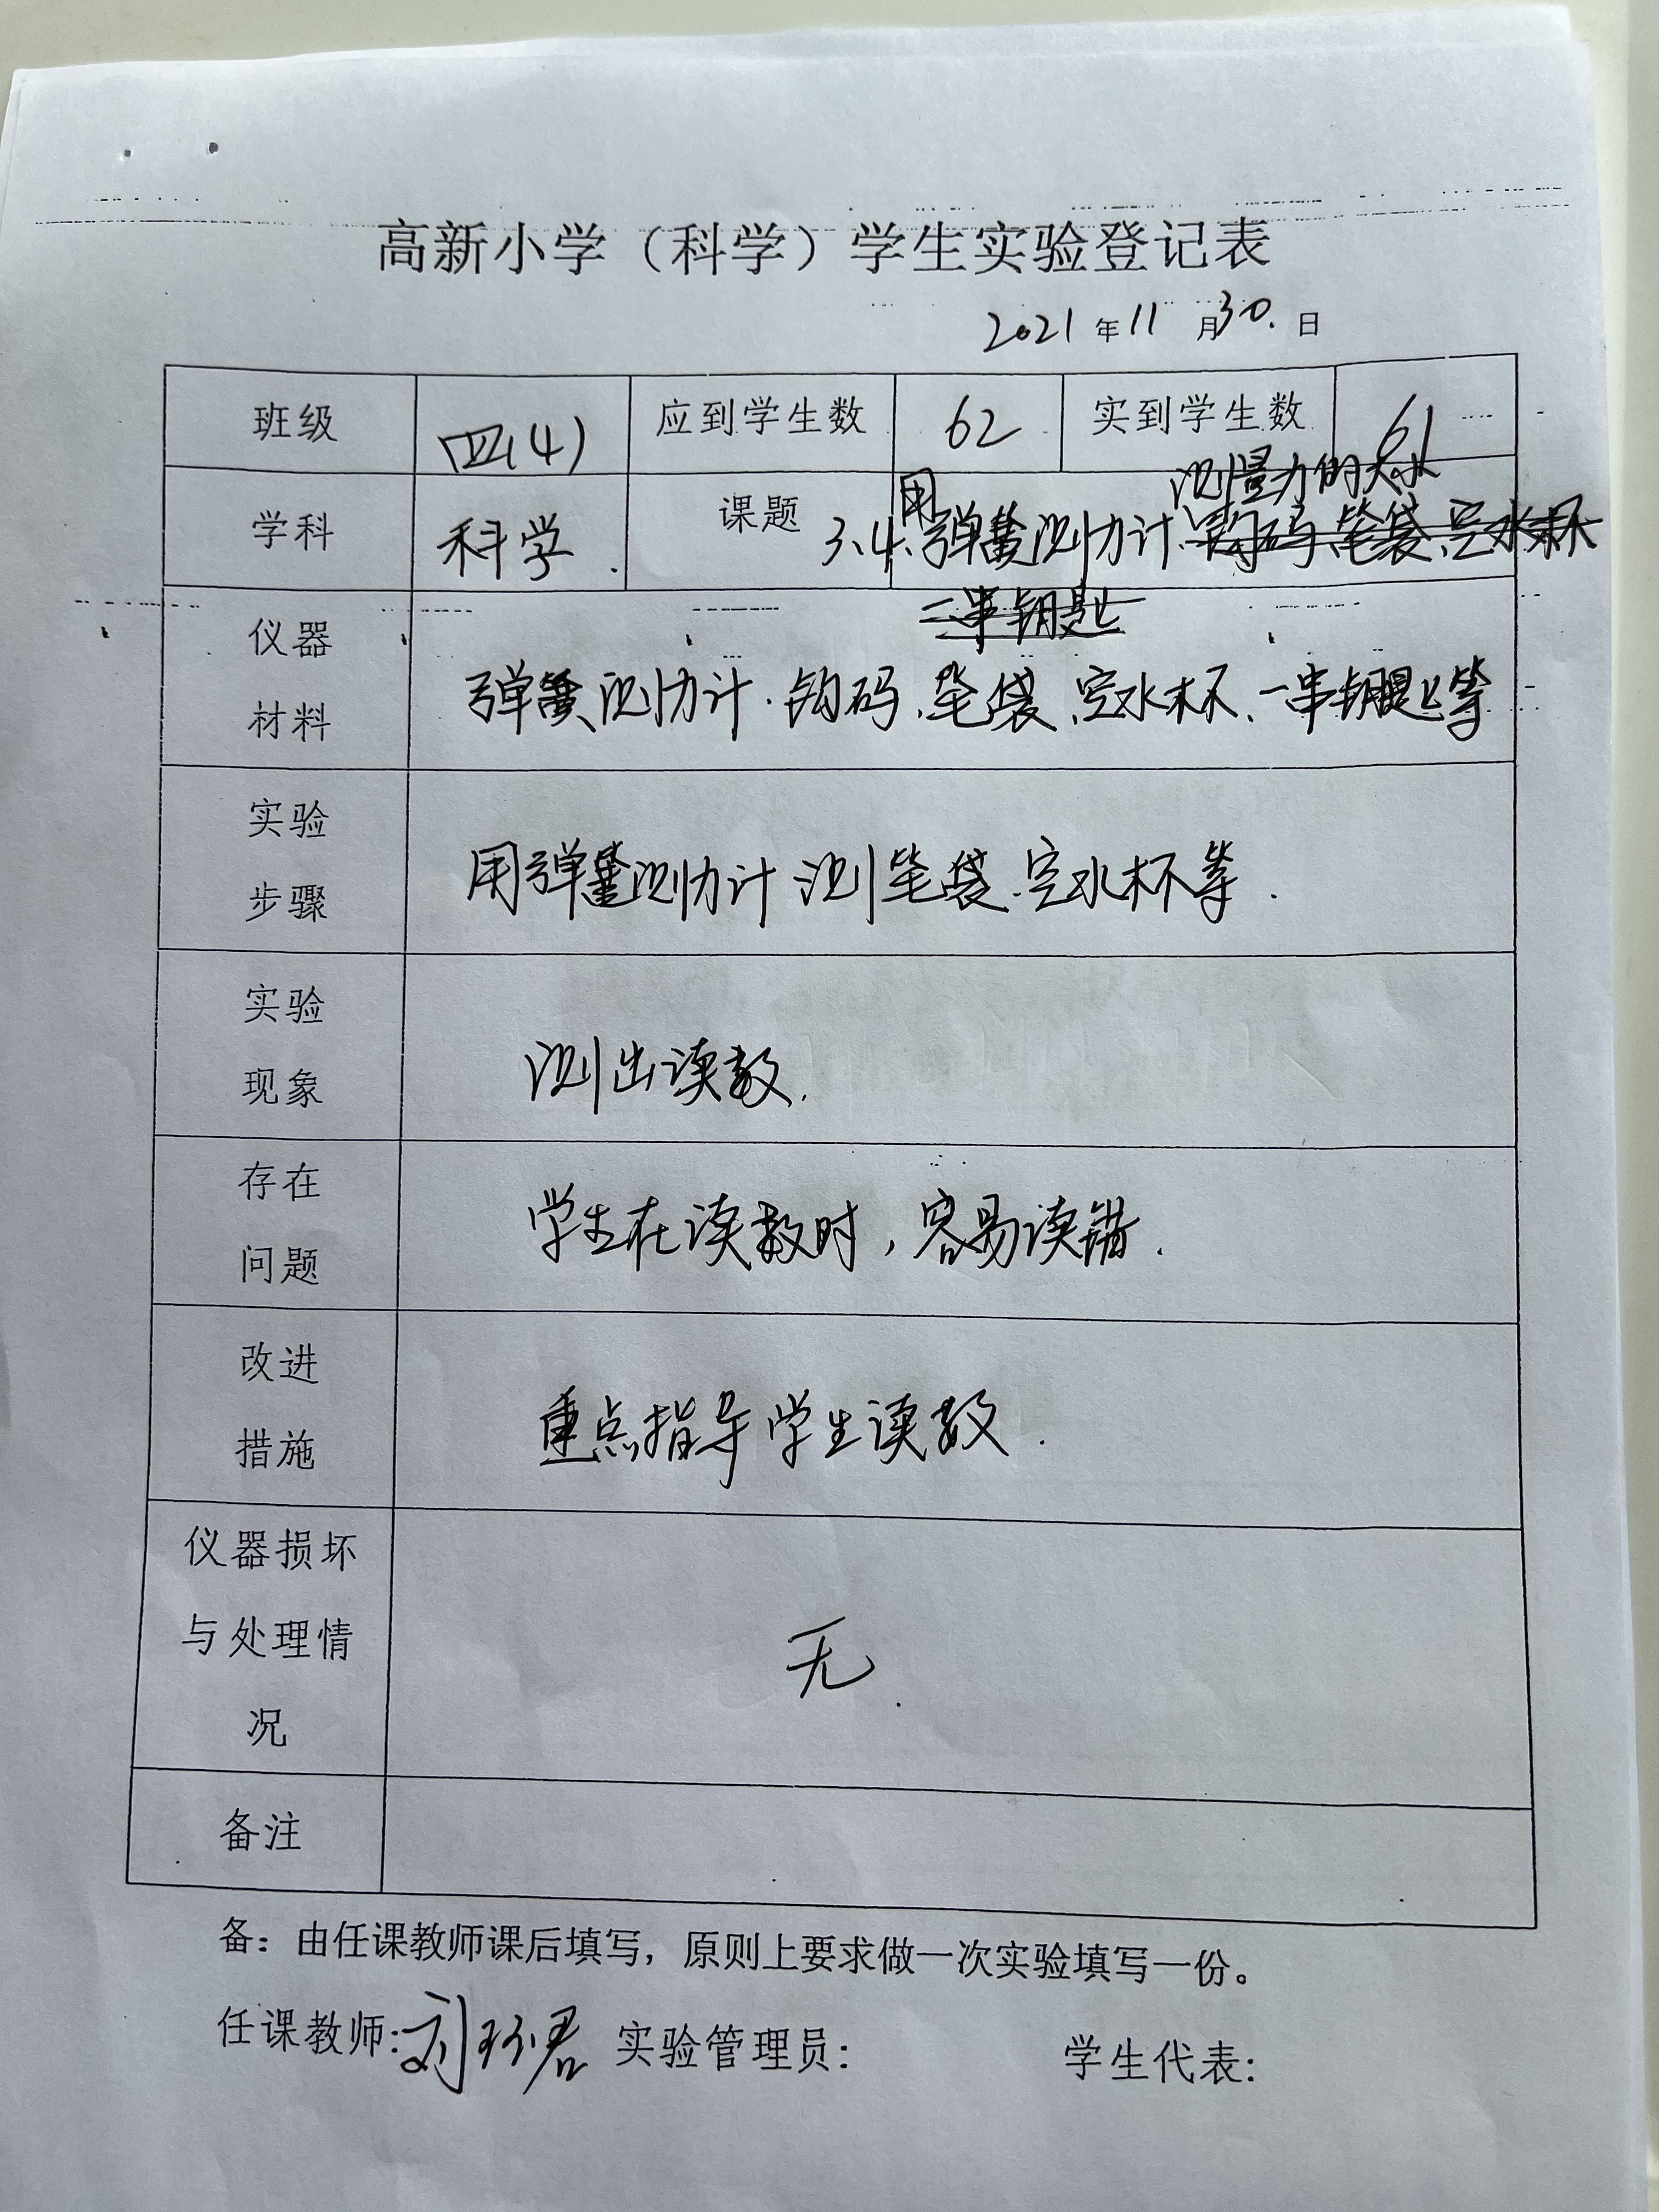 高新小学（科学）学生实验登记表
2021年11月30.日
班级 四(4) 应到学生数 62 实到学生数 61
学科 科学. 课题 3.4.用弹簧测力计测量力的大小 钩码、笔袋、空水杯
一串钥匙
仪器
材料
弹簧测力计.钩码、笔袋、空水杯、一串钥匙等
实验
步骤
用弹簧测力计测笔袋、空水杯等.
实验
现象
测出读数.
存在
问题
学生在读数时，容易读错.
改进
措施
重点指导学生读数.
仪器损坏
与处理情
况
无.
备注
备：由任课教师课后填写，原则上要求做一次实验填写一份。
任课教师:刘 君 实验管理员: 学生代表: